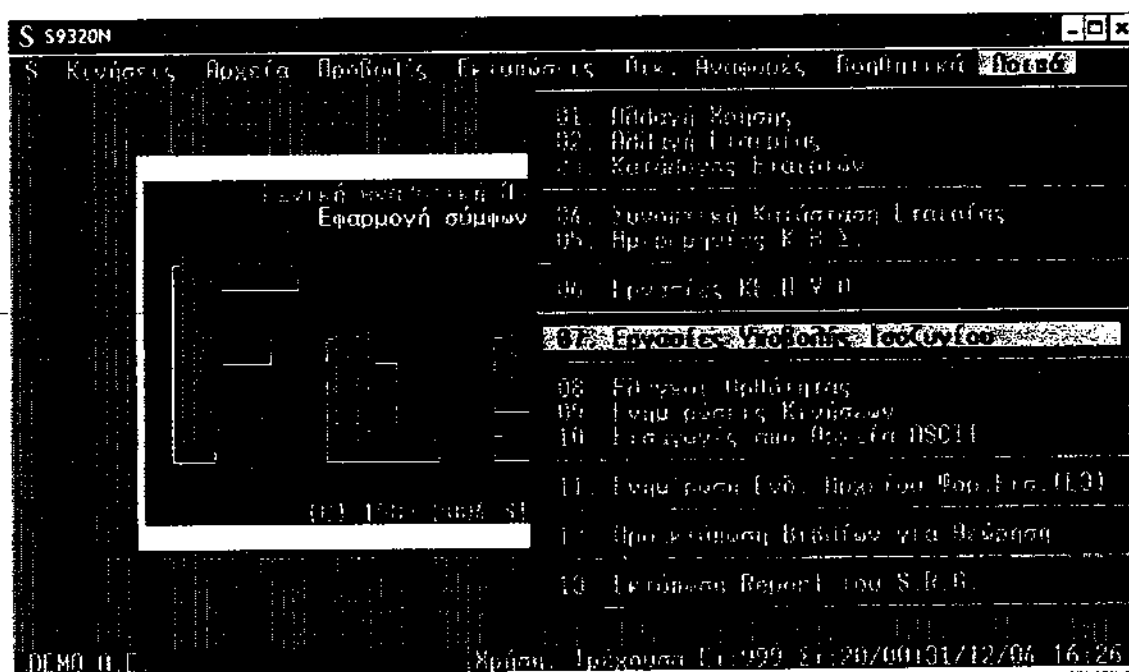 S S9320N
S Κινήσεις Αρχεία Προβολές Εκτυπώσεις Πιν. Αναφορές Βοηθητικά Λοιπά
01. Αλλαγή Χρήσης
02. Αλλαγή Εταιρίας
Κατάλογος Εταιριών
Γενική
Εφαρμογή σύμφων
04. Συνοπτική Κατάσταση Εταιρίας
05. Ημερομηνίες Κ.Η.Σ.
06. Εργασίες ΚΕ.Π.Υ.Ο
07. Εργασίες Υποβολής Ισοζυγίου
08. Έλεγχοι Ορθότητας
09. Ενημερώσεις Κινήσεων
10. Εισαγωγές από Αρχεία ASCII
11. Ενημέρωση Ενδ. Αρχείου Φορ.Στοι.(ΕΘ)
12. Προεκτύπωση Βιβλίων για Θεώρηση
13. Εκτύπωση Report του S.R.G.
DEMO Α.Ε.
Χρήση: Τρέχουσα Ετ:999 Στ:20/00:31/12/04 16:26